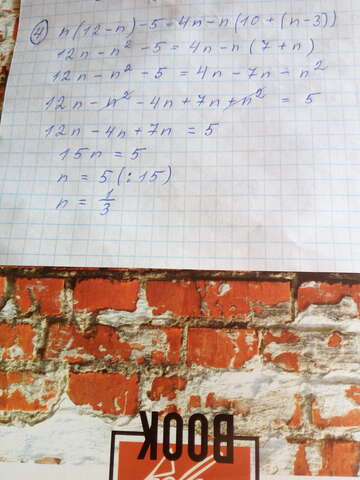 ④ n(12-n)-5=4n-n(10+(n-3))
12n-n²-5=4n-n(7+n)
12n-n²-5=4n-7n-n²
12n-n²-4n+7n+n² = 5
12n-4n+7n=5
15n=5
n=5(:15)
n=1/3
BOOK